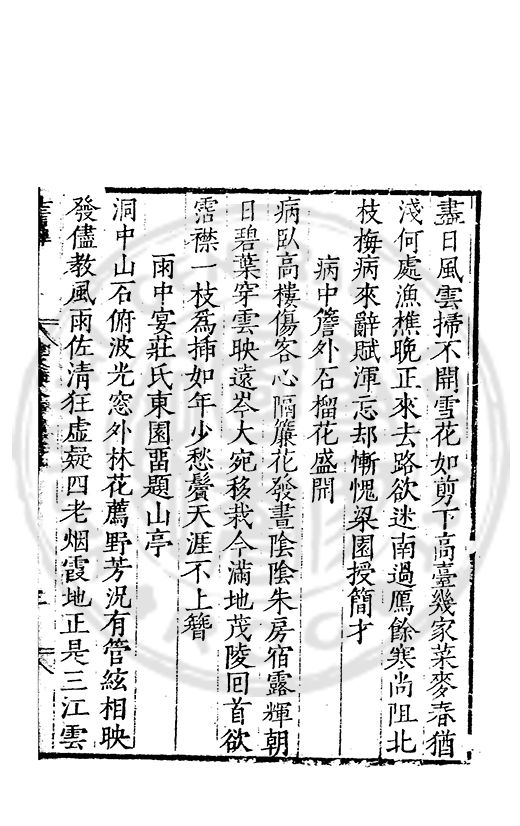 盡日風雲掃不開雪花如剪下高臺幾家菜麥春猶
淺何處漁樵晚正來去路欲迷南過鴈餘寒尚阻北
枝梅病來辭賦渾忘却慚愧梁園授簡才
病中簷外石榴花盛開
病臥高樓傷客心隔簾花發晝陰陰朱房宿露輝朝
日碧葉穿雲映遠岑大宛移栽今滿地茂陵回首欲
霑襟一枝爲揷如年少愁鬢天涯不上簪
雨中宴莊氏東園畱題山亭
洞中山石俯波光窓外林花薦野芳況有管絃相映
發儘教風雨佐清狂虛疑四老烟霞地正是三江雲